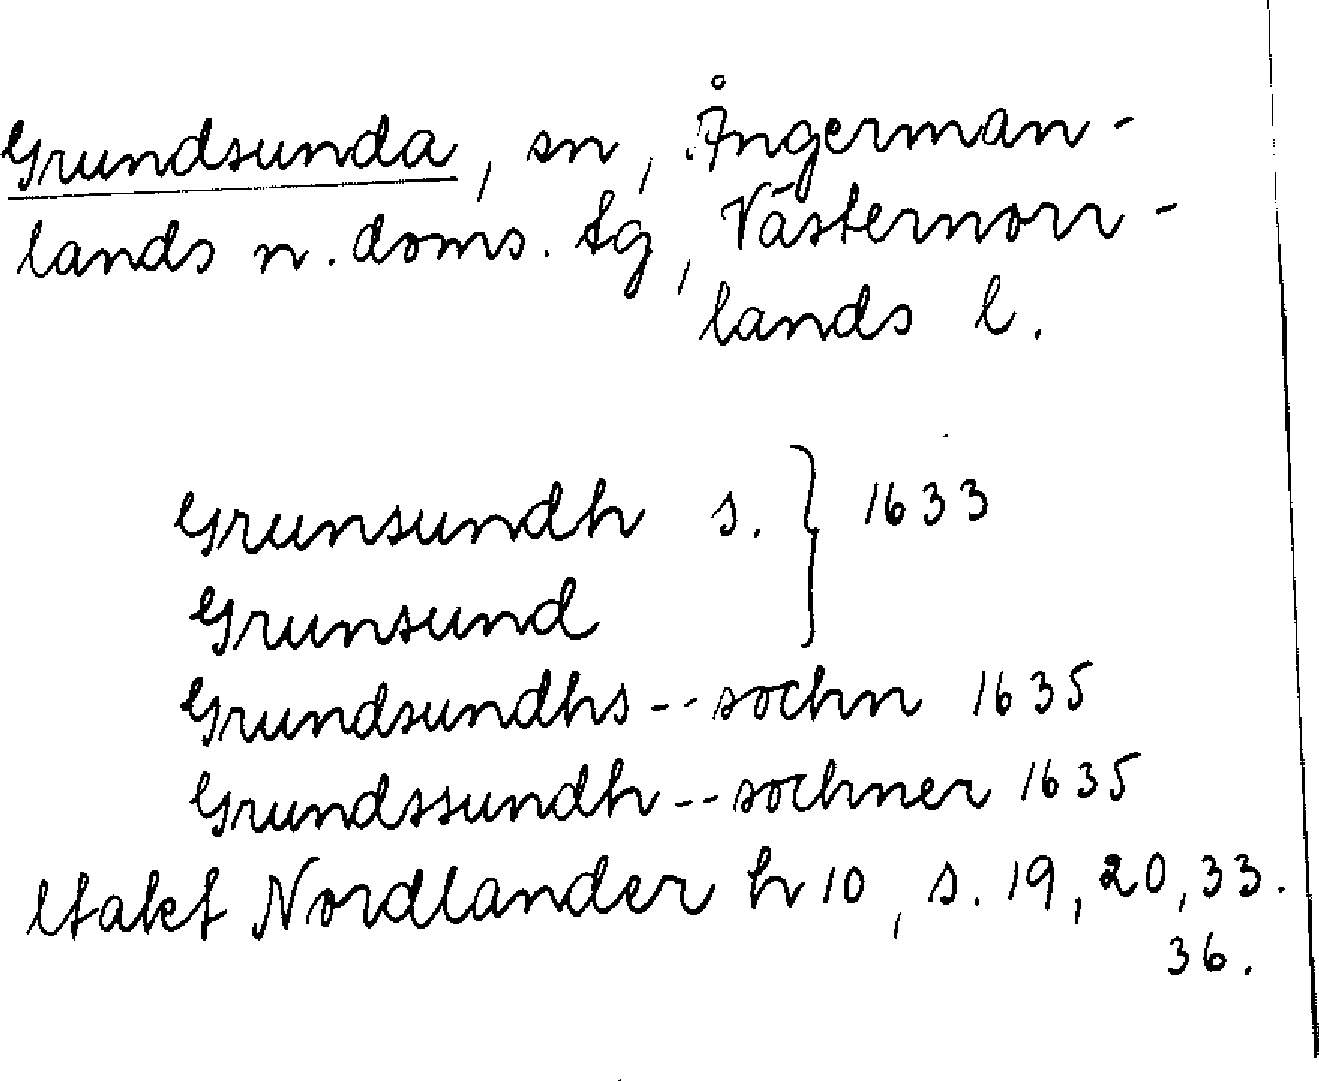 Grundsunda, sn, Ångerman-
lands n. doms. tg, Västernorr-
lands l.
Grunsundh s. } 1633
Grunsund
Grundsundhs -- sochn 1635
Grundssundh -- sochner 1635
Utakt Nordlander h 10, s. 19, 20, 33.
36.